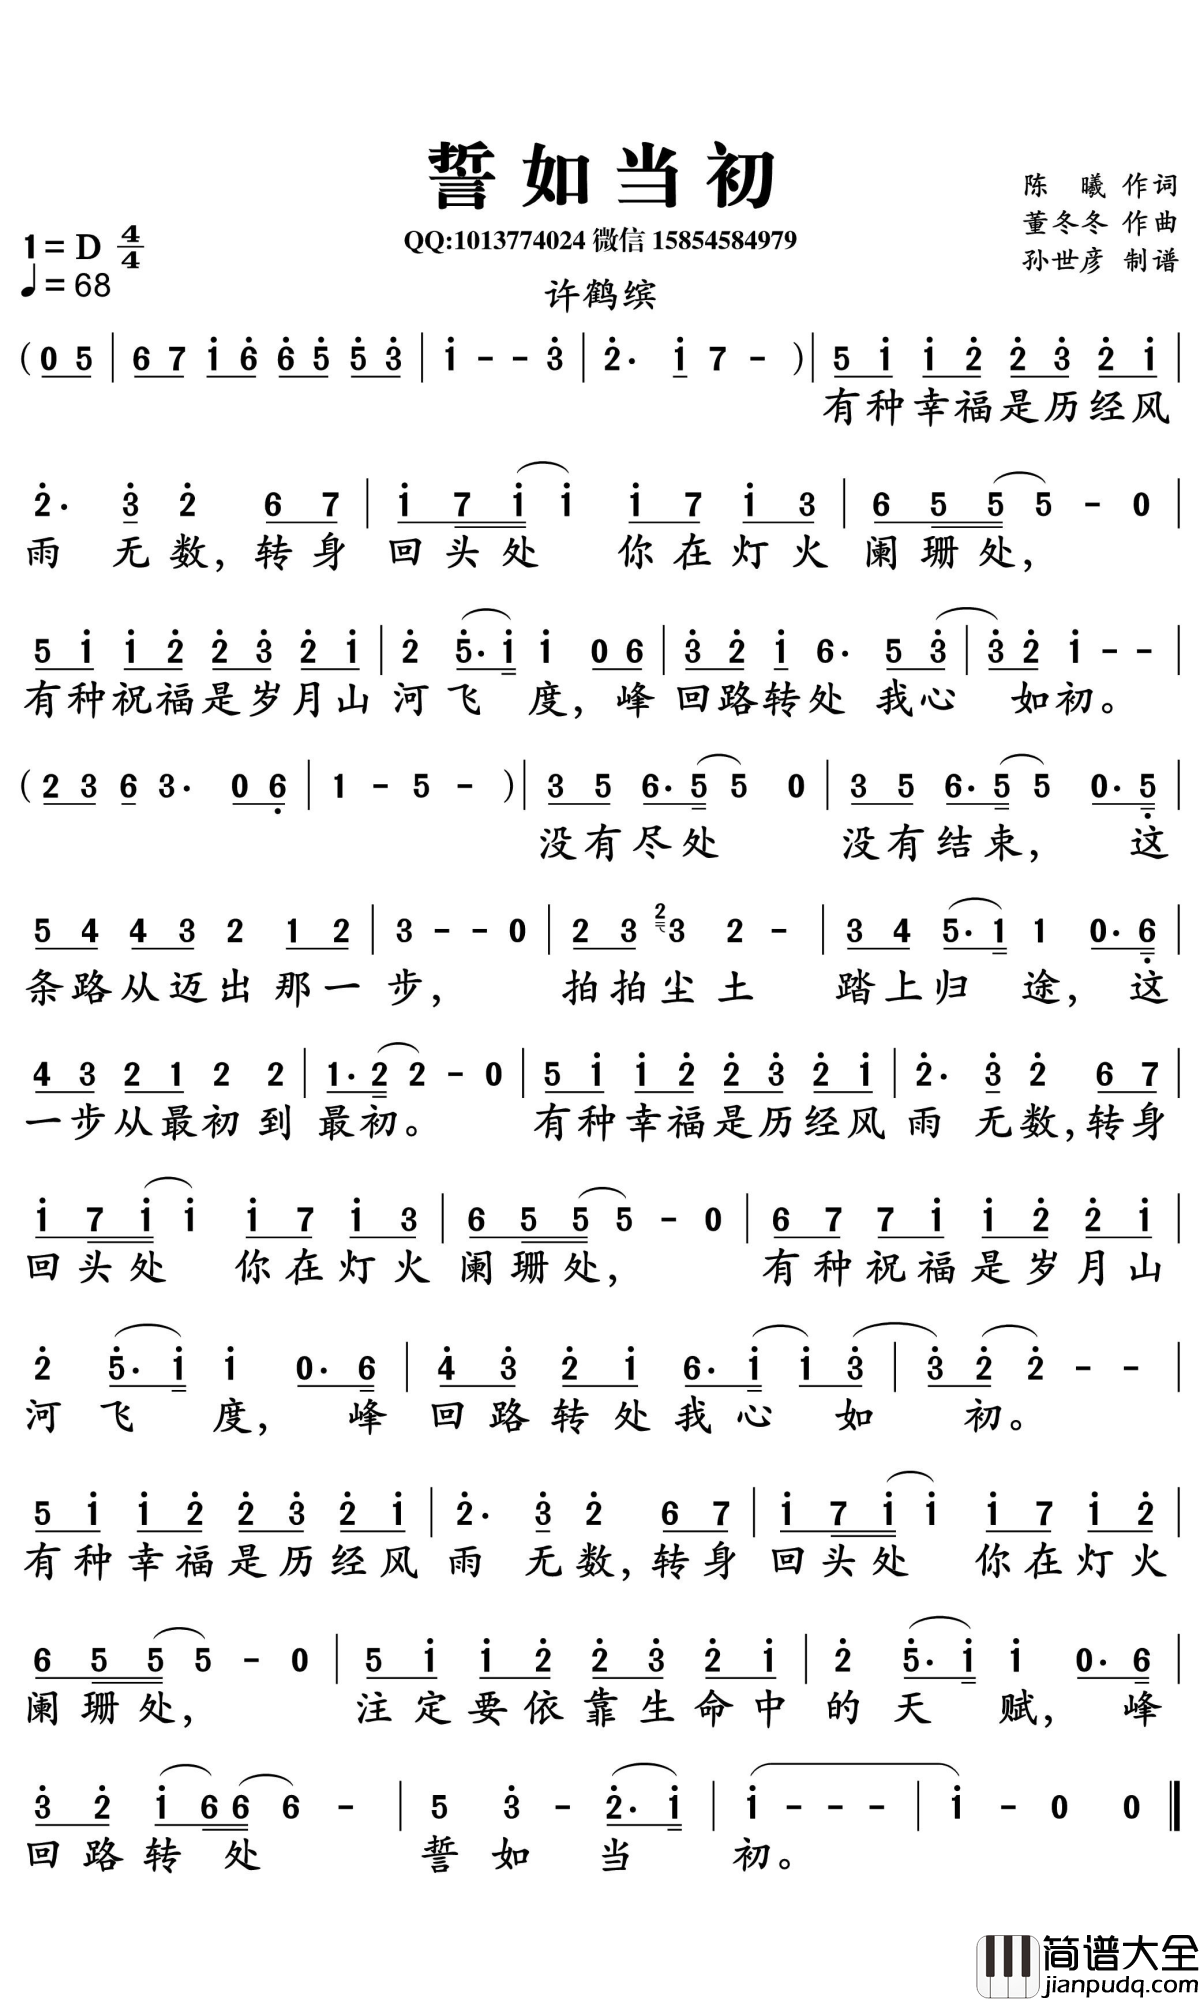 誓如当初
陈 曦 作词
QQ:1013774024 微信 15854584979
董冬冬 作曲
1=D 4/4
孙世彦 制谱
♩=68
许鹤缤
(0 5 | 6 7 i 6̇ 6̇ 5̇ 5̇ 3̇ | i - - 3̇ | 2̇· i 7 - ) | 5 i i 2̇ 2̇ 3̇ 2̇ i |
有种幸福是历经风
2̇· 3̇ 2̇ 6 7 | i 7 i i i 7 i 3 | 6 5 5 5 - 0 |
雨 无数,转身 回头处 你在灯火 阑珊处,
5 i i 2̇ 2̇ 3̇ 2̇ i | 2̇ 5̇· i i 0 6 | 3̇ 2̇ i 6· 5 3̇ | 3̇ 2̇ i - - |
有种祝福是岁月山 河飞 度,峰 回路转处 我心 如初。
(2 3 6 3· 0 6̣ | 1 - 5 - ) | 3 5 6· 5 5 0 | 3 5 6· 5 5 0· 5̣ |
没有尽处 没有结束, 这
5 4 4 3 2 1 2 | 3 - - 0 | 2 3 2 3 2 - | 3 4 5· 1 1 0· 6̣ |
条路从迈出 那一 步, 拍拍尘土 踏上归 途, 这
4 3 2 1 2 2 | 1· 2 2 - 0 | 5 i i 2̇ 2̇ 3̇ 2̇ i | 2̇· 3̇ 2̇ 6 7 |
一步从最初到 最初。 有种幸福是历经风 雨 无数,转身
i 7 i i i 7 i 3 | 6 5 5 5 - 0 | 6 7 7 i i 2̇ 2̇ i |
回头处 你在灯火 阑珊处, 有种祝福是岁月山
2̇ 5̇· i i 0· 6 | 4̇ 3̇ 2̇ i 6· i i 3̇ | 3̇ 2̇ 2̇ - - |
河飞 度, 峰 回路转处我心 如 初。
5 i i 2̇ 2̇ 3̇ 2̇ i | 2̇· 3̇ 2̇ 6 7 | i 7 i i i 7 i 2̇ |
有种幸福是历经风 雨 无数,转身 回头处 你在灯火
6 5 5 5 - 0 | 5 i i 2̇ 2̇ 3̇ 2̇ i | 2̇ 5̇· i i 0· 6 |
阑珊处, 注定要依靠生命中 的天 赋, 峰
3̇ 2̇ i 6 6 6 - | 5 3̇ - 2̇· i | i - - - | i - 0 0 ‖
回路转 处 誓如 当 初。
简谱大全
jianpudq.com